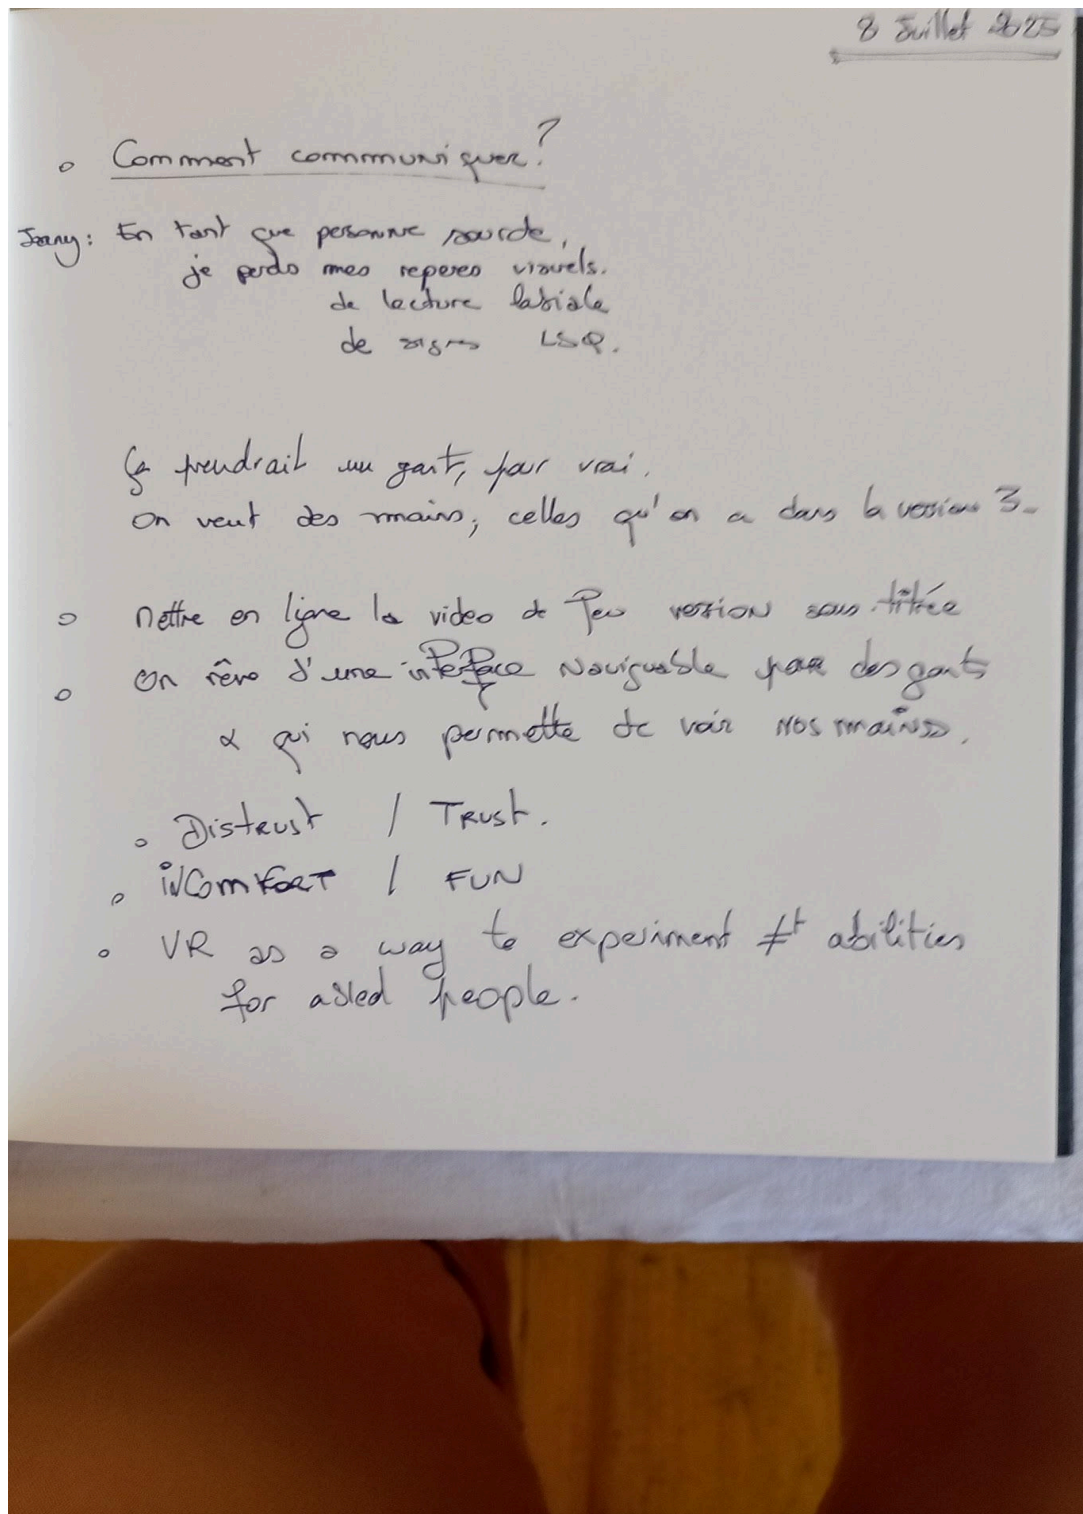 8 Juillet 2025
Comment communiquer?
En tant que personne sourde,
je perds mes reperes visuels.
de lecture labiale
de signes LSQ.
Ça prendrait un gant, pour vrai.
On veut des mains, celles qu'on a dans la version 3.
Mettre en ligne la video de version sous-titrée
On rêve d'une interface naviguable par des gants
& qui nous permette de voir nos mains.
Distrust / Trust.
inComfort / FUN
VR as a way to experiment ≠t abilities
for abled people.